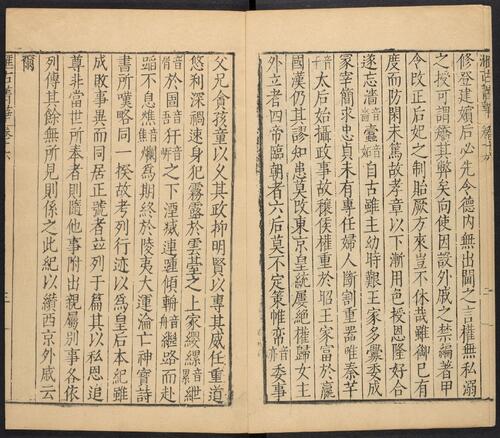 滙古菁華 卷十六 二
修登建嬪后必先令德内無出閫之言權無私溺
之授可謂矯其弊矣向使因設外戚之禁編著甲
令改正后妃之制貽厥方來豈不休哉雖御已有
度而防閑未篤故孝章以下漸用色授恩隆好合
遂忘淄音蠹音妒自古雖主幼時艱王家多釁委成
冢宰簡求忠貞未有專任婦人斷割重器唯秦芊
音太后始攝政事故穰侯權重於昭王家富於嬴
國漢仍其謬知患莫改東京皇統屢絶權歸女主
外立者四帝臨朝者六后莫不定策帷帟音亦委事
父兄貪孩童以久其政抑明賢以專其威任重道
悠利深禍速身犯霧露於雲臺之上家纓縲音累紲
音於圄音犴音之下湮滅連踵傾輈音舟繼路而赴
蹈不息燋音爛爲期終於陵夷大運淪亡神寶詩
書所嘆略同一揆故考列行迹以爲皇后本紀雖
成敗事異而同居正號者並列于篇其以私恩追
尊非當世所奉者則隨他事附出親屬別事各依
列傳其餘無所見則係之此紀以纘西京外戚云
爾
滙古菁華 卷十六 三